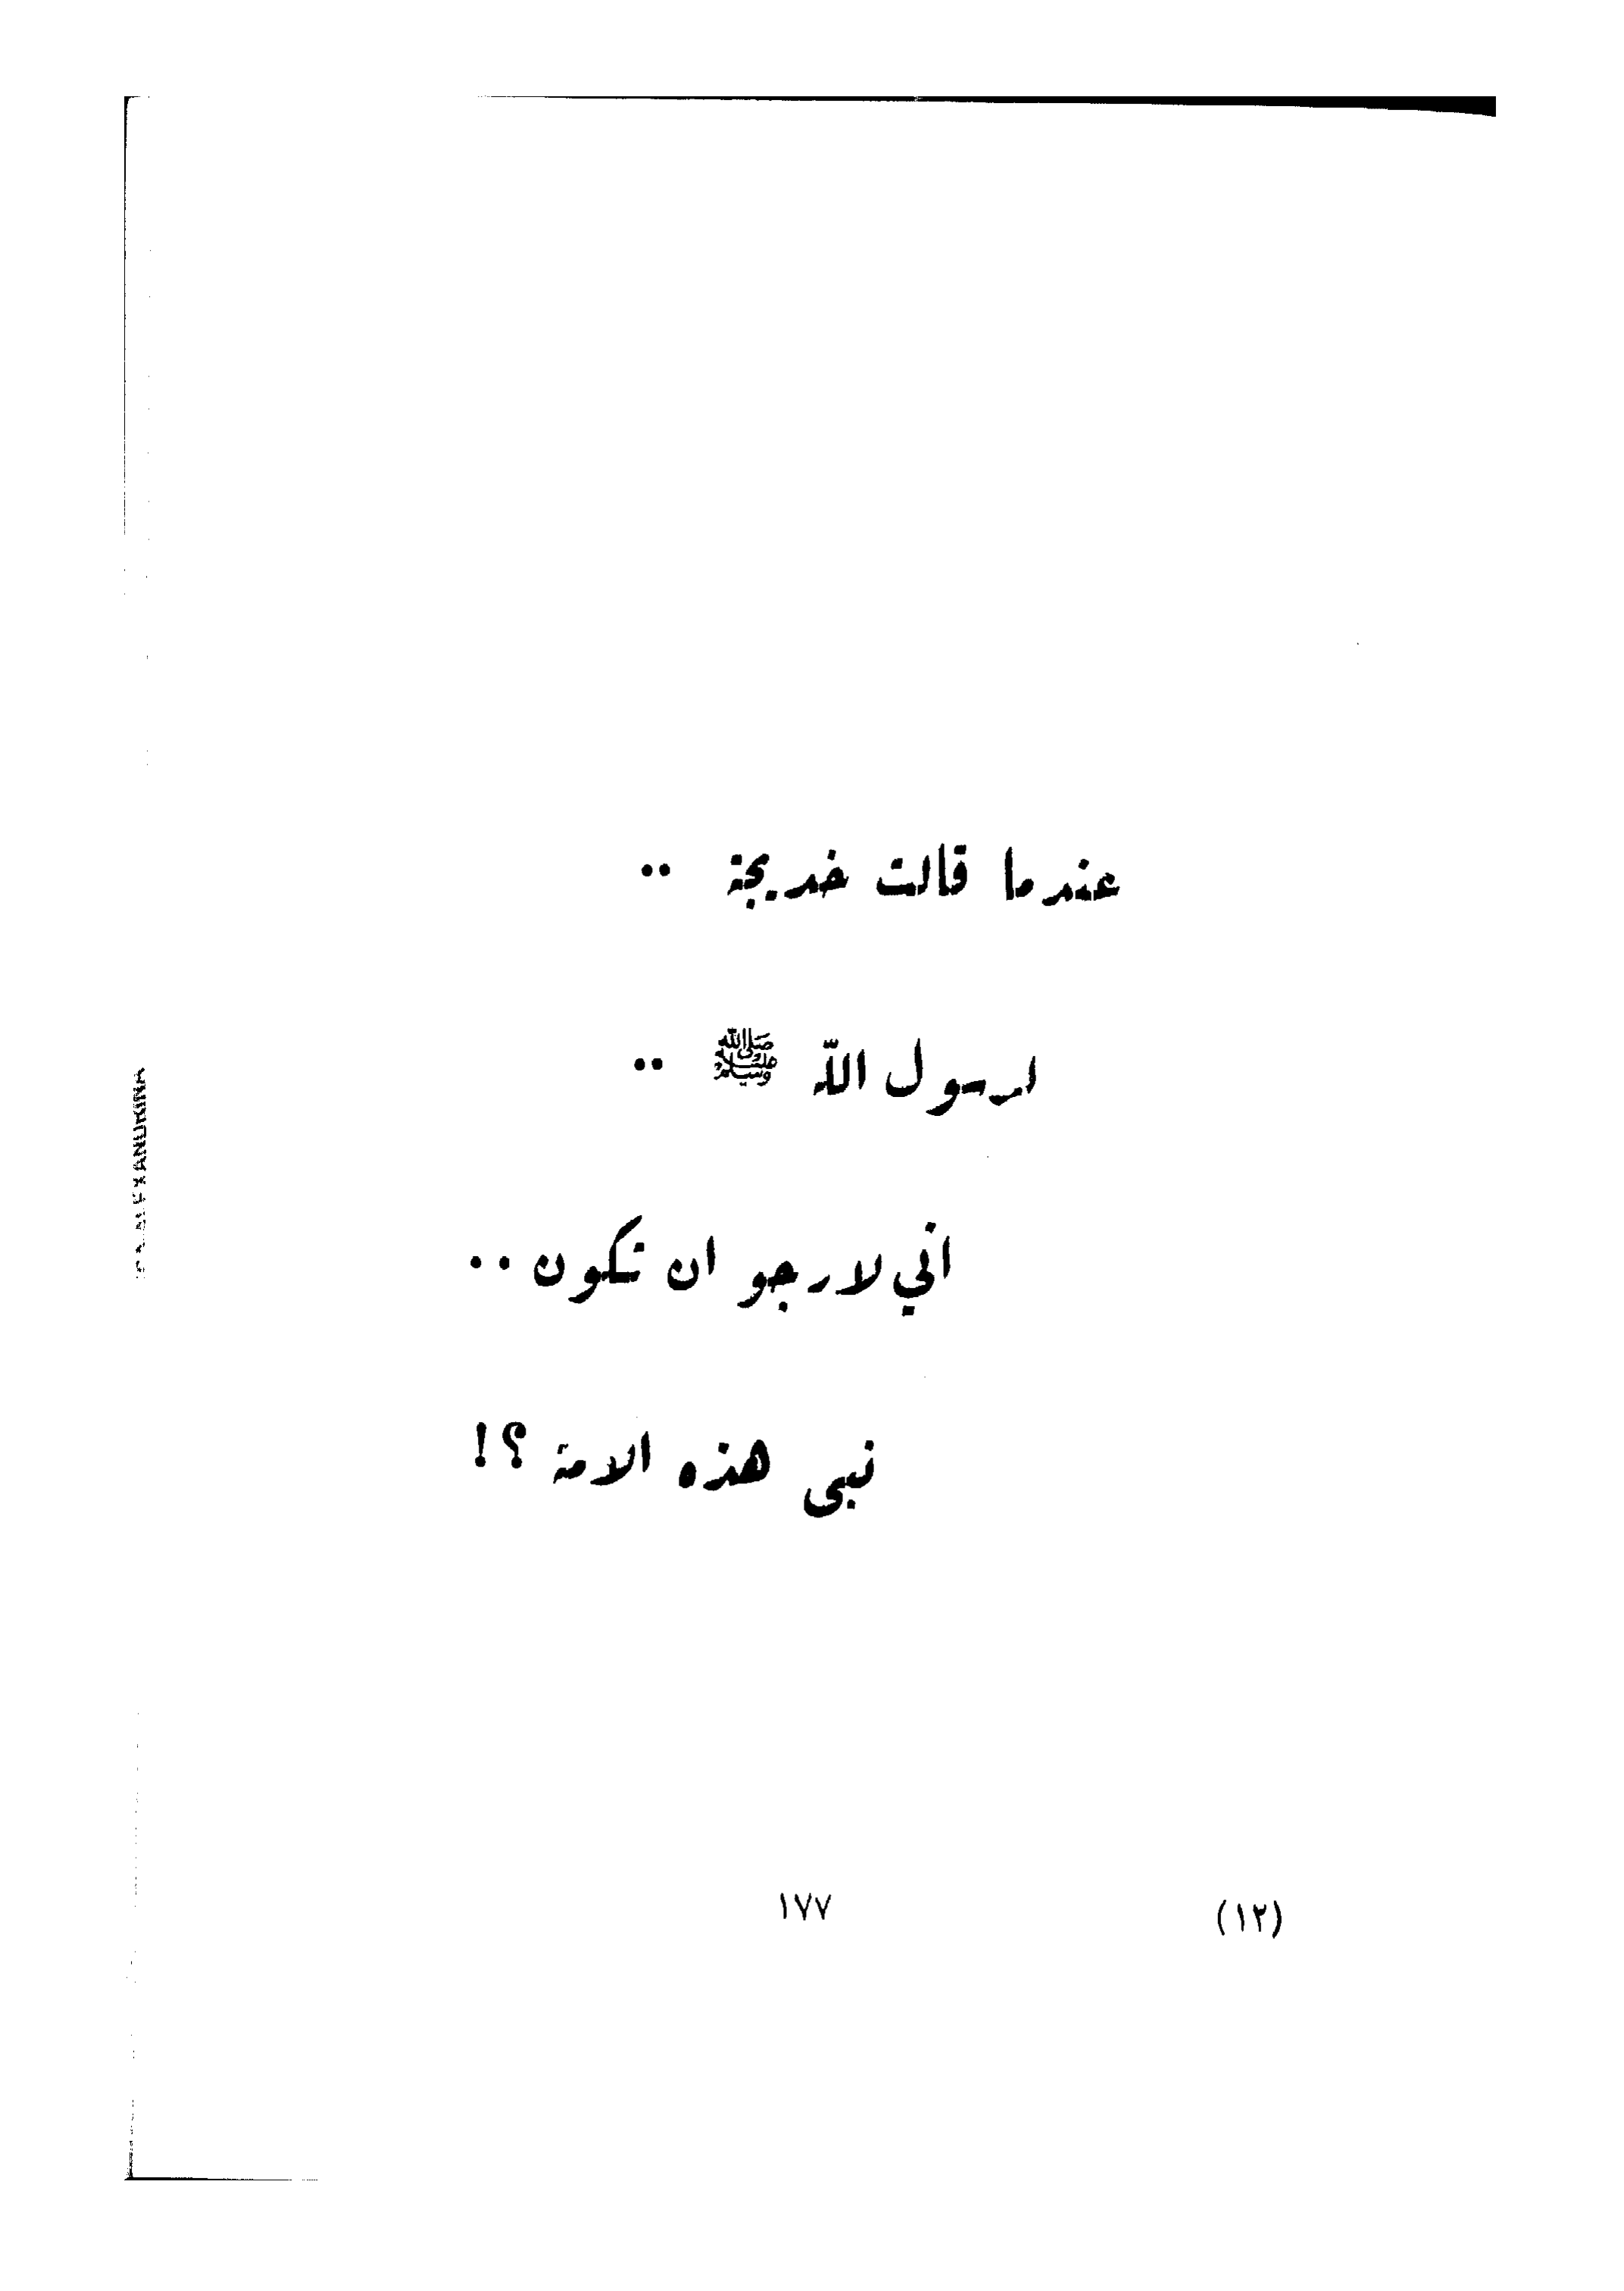 عندما قالت خديجة ..
لرسول الله ﷺ ..
اني لارجو ان تكون ..
نبى هذه الامة ؟!
١٧٧
(١٢)